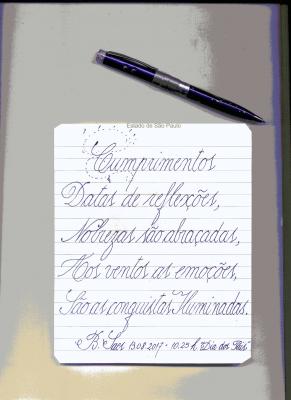 Estado de São Paulo
Cumprimentos
Datas de reflexões,
Nobrezas são abraçadas,
Aos ventos as emoções,
São as conquistas Iluminadas.
B. Sacs 13.08.2017 - 10.25 h. "Dia dos Pais"